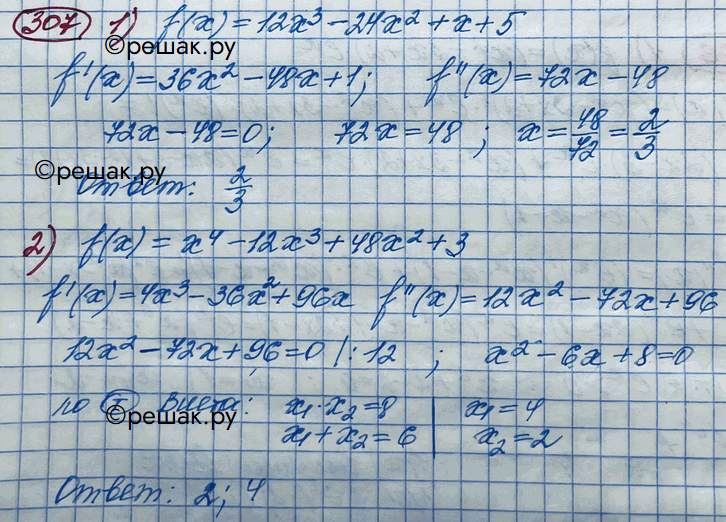 307 1) f(x) = 12x³ - 24x² + x + 5
©решак.ру
f'(x) = 36x² - 48x + 1; f''(x) = 72x - 48
72x - 48 = 0; 72x = 48; x = 48/72 = 2/3
©решак.ру
Ответ: 2/3
2) f(x) = x⁴ - 12x³ + 48x² + 3
f'(x) = 4x³ - 36x² + 96x f''(x) = 12x² - 72x + 96
12x² - 72x + 96 = 0 |: 12 ; x² - 6x + 8 = 0
по Т Виета: x₁·x₂ = 8 | x₁ = 4
©решак.ру
x₁ + x₂ = 6 | x₂ = 2
Ответ: 2; 4